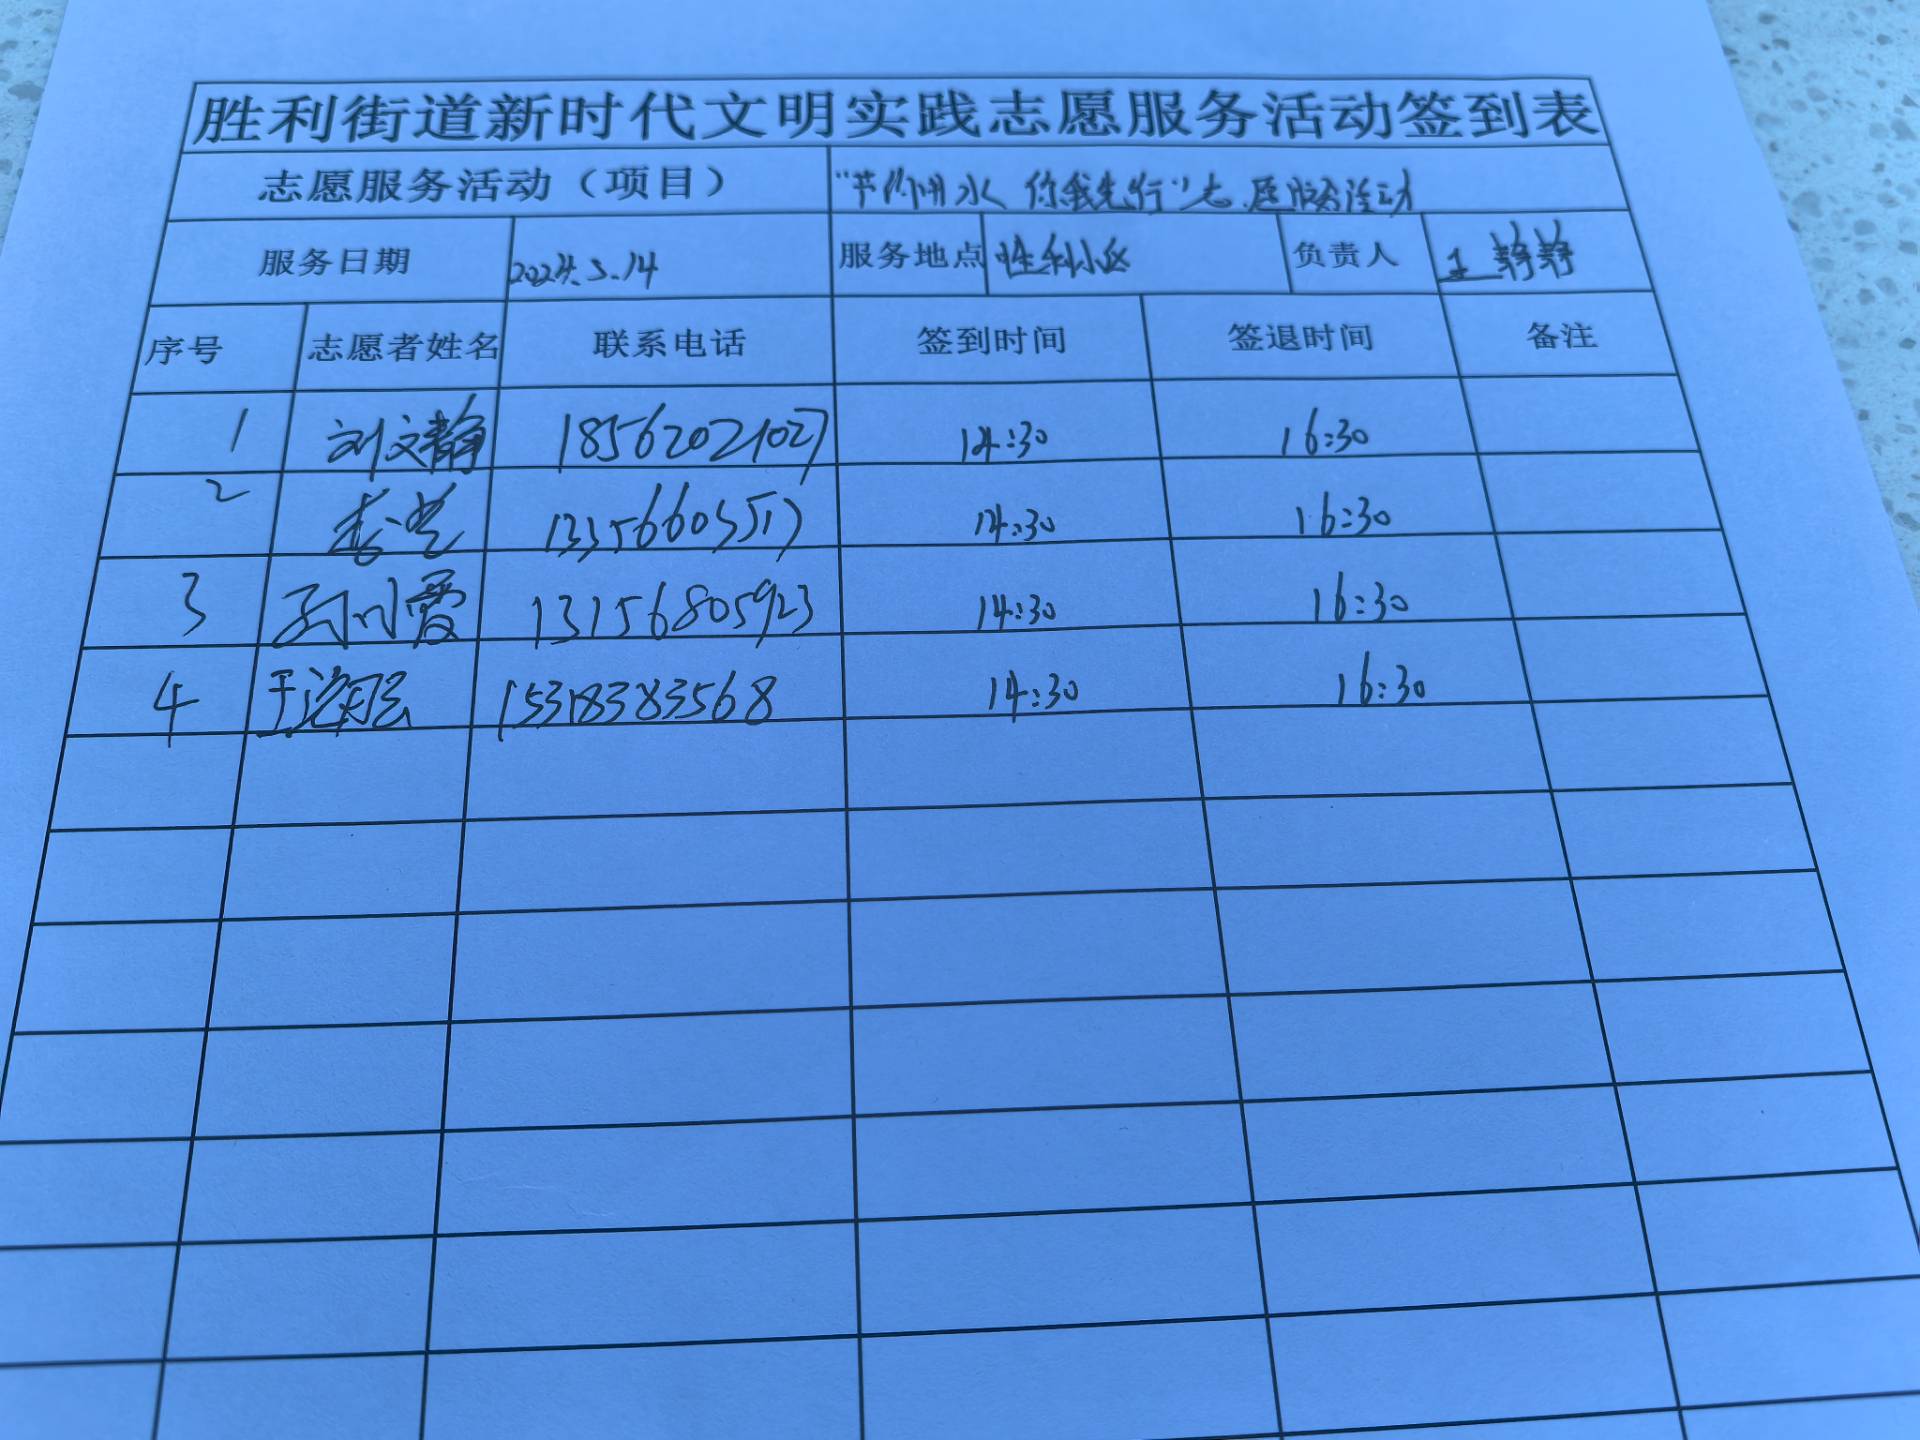 胜利街道新时代文明实践志愿服务活动签到表
志愿服务活动（项目） "节约用水 你我先行"志愿服务活动
服务日期 2024.3.14 服务地点 胜利小区 负责人 王静静
序号 志愿者姓名 联系电话 签到时间 签退时间 备注
1 刘文静 18562021027 14:30 16:30
2 14:30 16:30
3 13156805923 14:30 16:30
4 15318383568 14:30 16:30